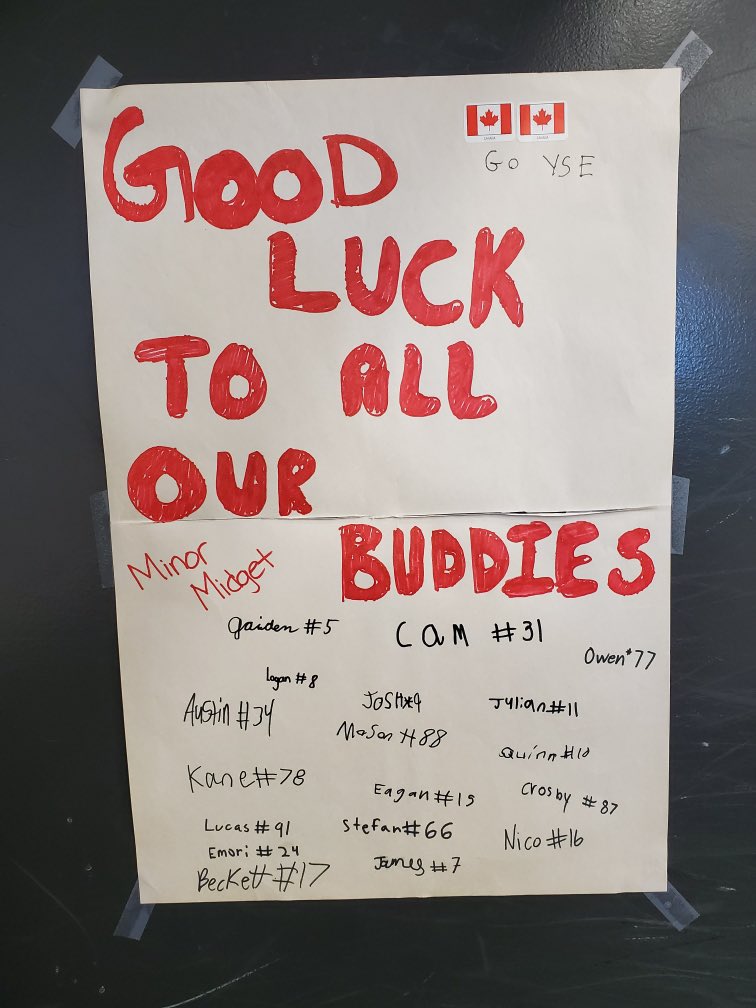 GOOD
LUCK
TO ALL
OUR
BUDDIES
GO YSE
Minor
Midget
Jaiden #5
Cam #31
Owen #77
Logan #8
Austin #34
JOSH #9
Julian #11
Mason #88
Quinn #10
Kane #78
Eagan #15
Crosby #87
Lucas #91
Stefan #66
Nico #16
Emori #24
James #7
Beckett #17